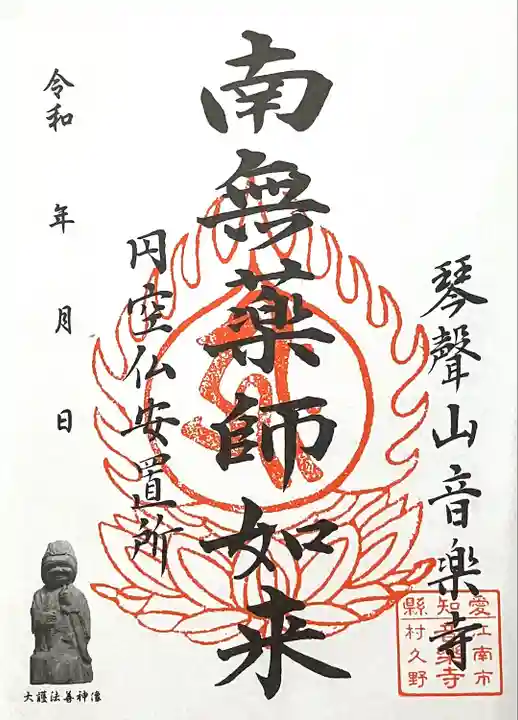 琴聲山音樂寺
愛江南市
知音樂寺
縣村久野
南無薬師如来
円空仏安置所
令和 年 月 日
大護法善神像